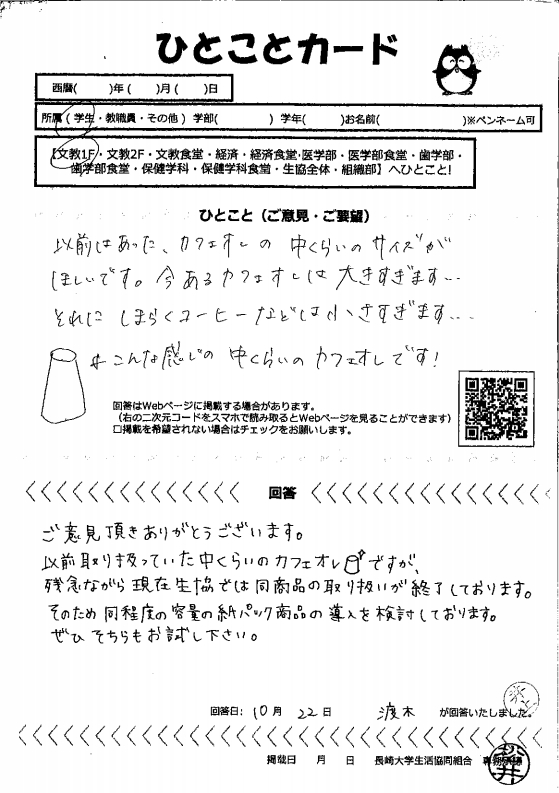 ひとことカード
西暦(　　)年(　　)月(　　)日
所属(学生・教職員・その他) 学部(　　　) 学年(　　　)お名前(　　　　　)※ペンネーム可
【文教1F・文教2F・文教食堂・経済・経済食堂・医学部・医学部食堂・歯学部・
歯学部食堂・保健学科・保健学科食堂・生協全体・組織部】へひとこと!
ひとこと(ご意見・ご要望)
以前はあった、カフェオレの 中くらいのサイズが
ほしいです。今あるカフェオレは 大きすぎます…
それに しぼらくコーヒーなどは小さすぎます…
こんな感じの 中くらいの カフェオレです!
回答はWebページに掲載する場合があります。
(右の二次元コードをスマホで読み取るとWebページを見ることができます)
□掲載を希望されない場合はチェックをお願いします。
回答
ご意見頂きありがとうございます。
以前取り扱っていた中くらいのカフェオレですが、
残念ながら現在生協では同商品の取り扱いが終了しております。
そのため同程度の容量の紙パック商品の導入を検討しております。
ぜひそちらもお試し下さい。
回答日: 10月 22日 渡木 が回答いたしました。
掲載日　月　日　長崎大学生活協同組合
松井